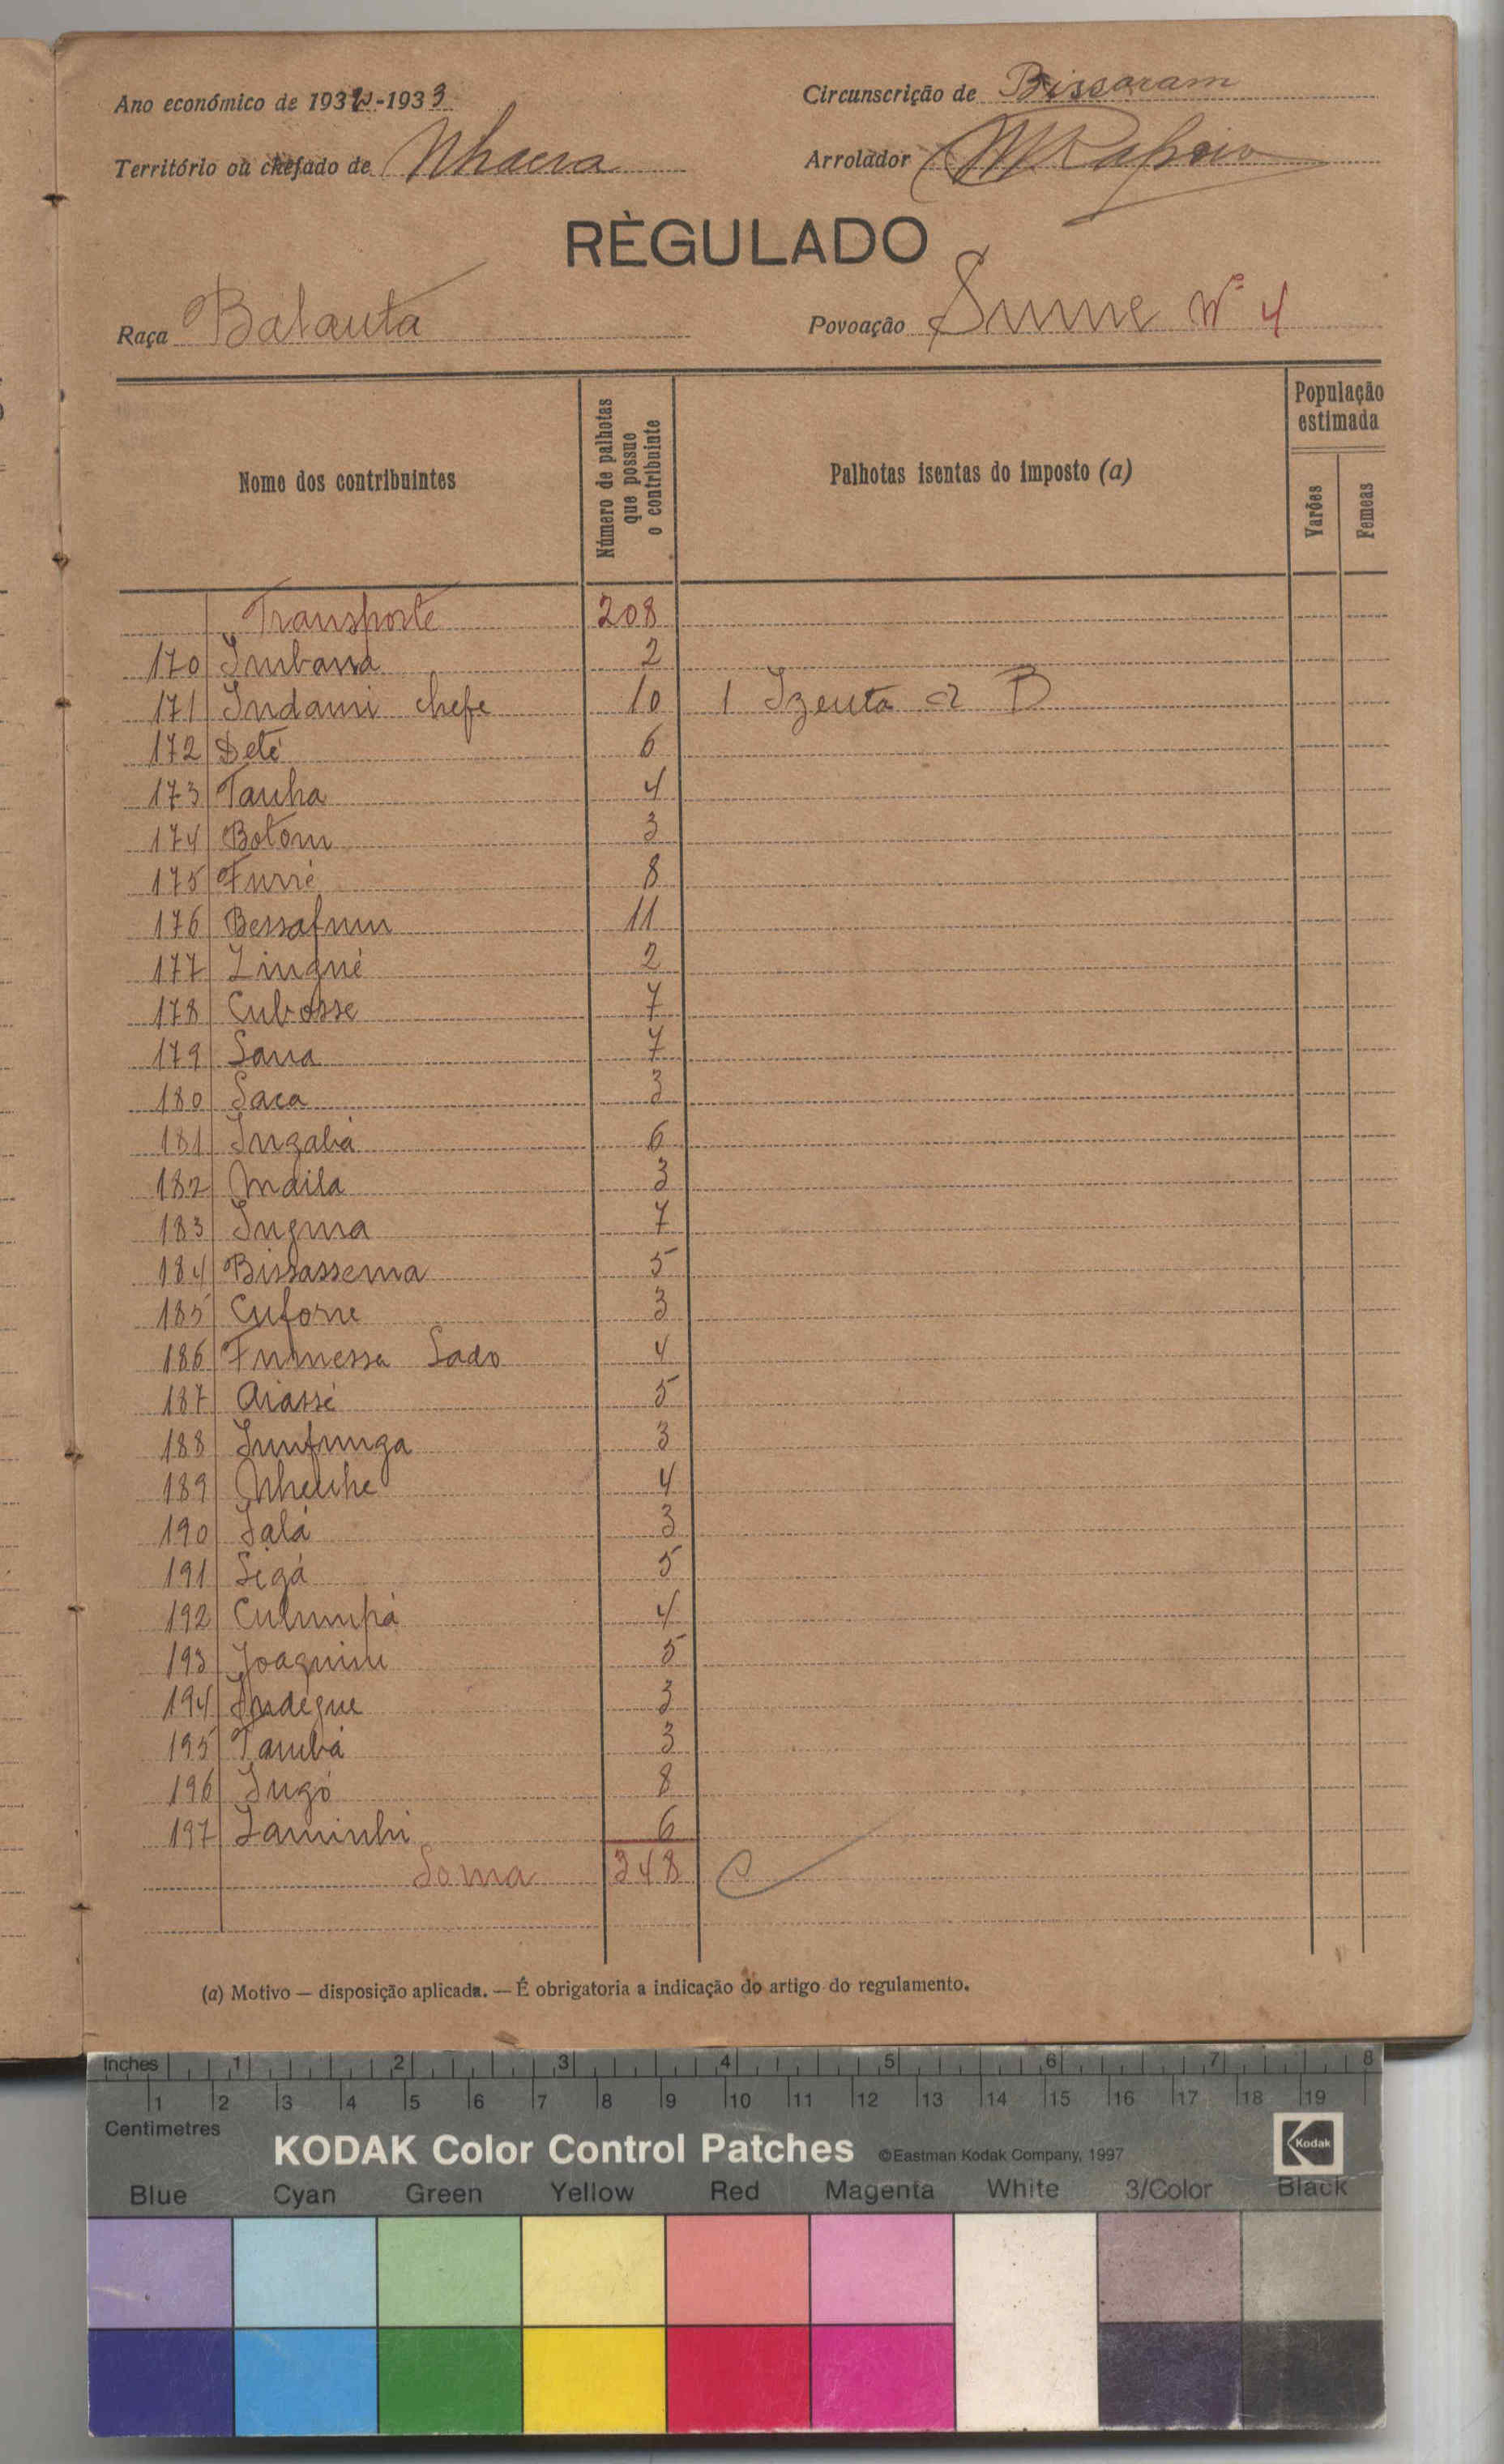 Ano económico de 1932-1933
Circunscrição de Bissoram
Território ou chefado de Nhacra
Arrolador
RÈGULADO
Raça Balanta
Povoação Sume Nº 4
Nome dos contribuintes
Número de palhotas que possue o contribuinte
Palhotas isentas do imposto (a)
População estimada
Varões
Femeas
Transporte 208
170 Imbana 2
171 Indami chefe 10 1 Izenta a) B
172 Deté 6
173 Tanha 4
174 Botom 3
175 Furné 8
176 Bessafnun 11
177 Zingné 2
178 Cubosse 7
179 Sana 7
180 Saca 3
181 Ingabá 6
182 Maila 3
183 Ingma 7
184 Bissassema 5
185 Cuforne 3
186 Fumessa Sado 4
187 Aiassé 5
188 Sunfunga 3
189 Nhenhe 4
190 Salá 3
191 Sigá 5
192 Culumpá 4
193 Joaquim 5
194 Indegue 3
195 Tambá 3
196 Ingó 8
197 Zaminhi 6
Soma 348
(a) Motivo — disposição aplicada. — É obrigatoria a indicação do artigo do regulamento.
Inches 1 2 3 4 5 6 7 8
1 2 3 4 5 6 7 8 9 10 11 12 13 14 15 16 17 18 19
Centimetres
KODAK Color Control Patches ©Eastman Kodak Company, 1997 Kodak
Blue Cyan Green Yellow Red Magenta White 3/Color Black